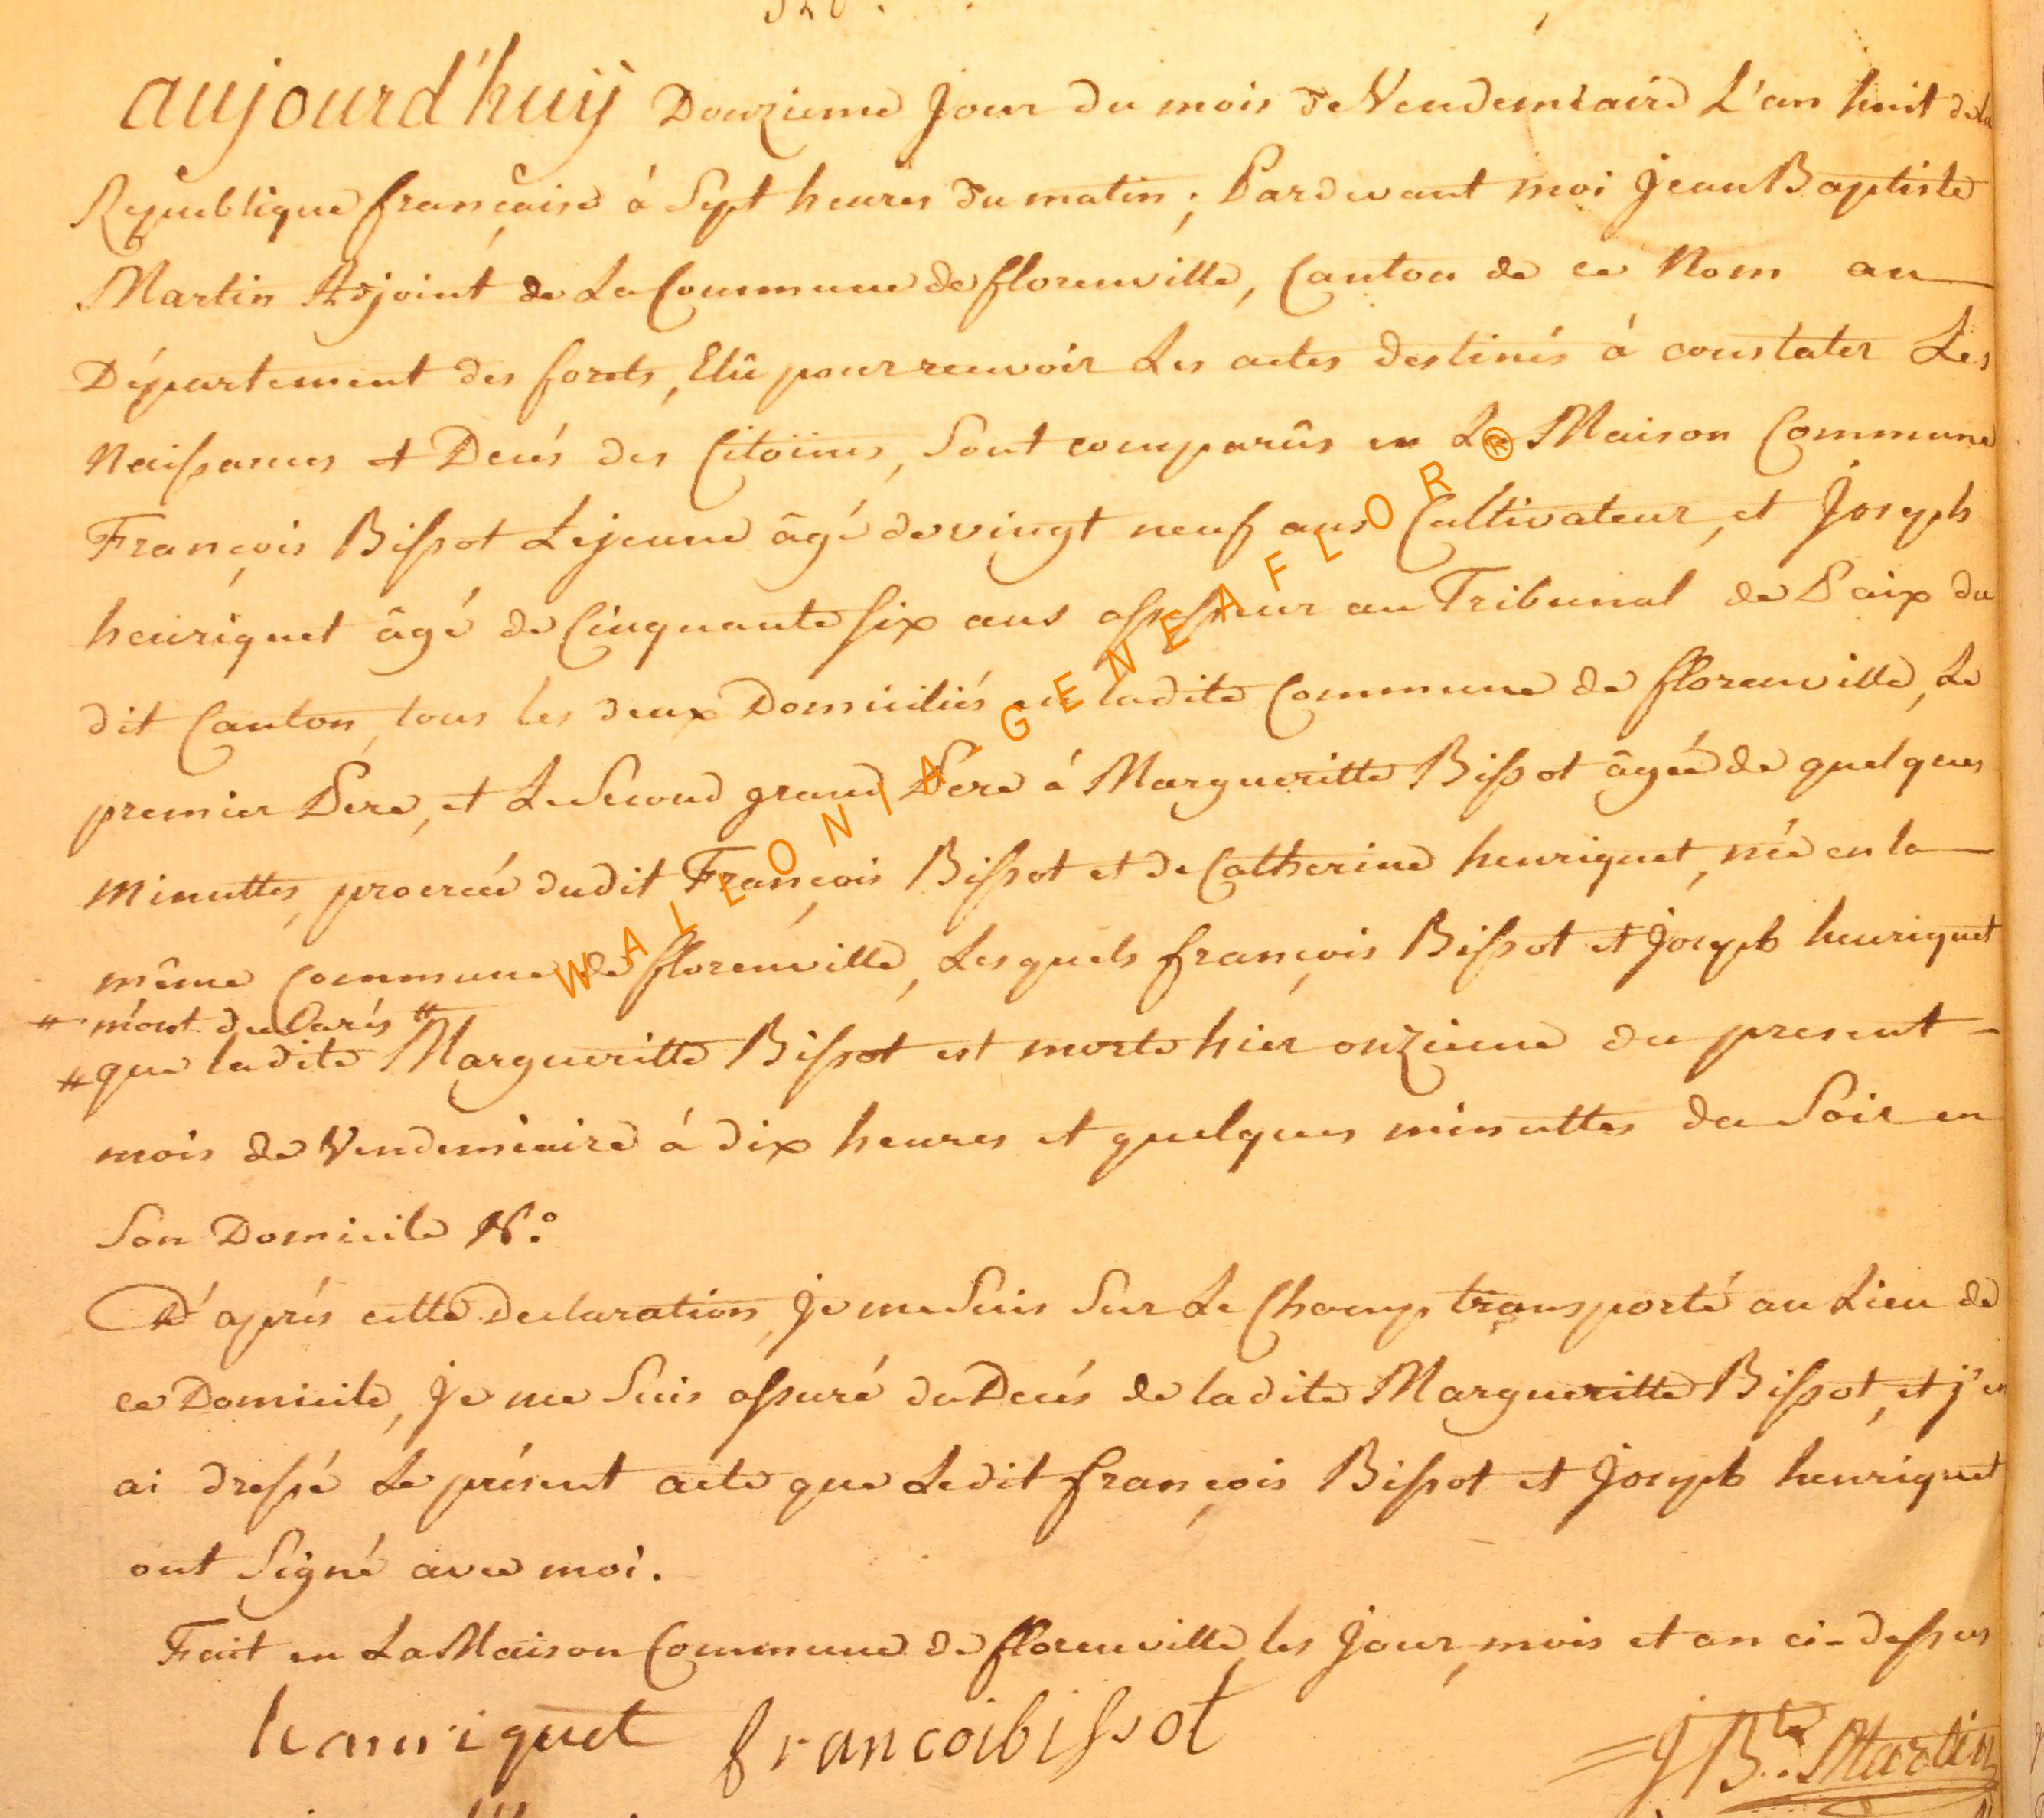 aujourd'huÿ Douzieme Jour du mois de Vendemiaire L'an huit dela
Republique française à Sept heures du matin ; Pardevant moi Jean Baptiste
Martin Adjoint de La Commune de florenville, Canton de ce Nom au
Département des forets, Elû pour recevoir Les actes destinés à constater Les
Naissances et Decés des Citoïens, Sont comparûs en La Maison Commune
François Bissot Lejeune âgé de vingt neuf ans Cultivateur, et Joseph
henriquet âgé de Cinquante six ans assesseur au Tribunal de Paix du
dit Canton, tous les deux Domiciliés en ladite Commune de florenville, Le
premier Pere, et Le Second grand Pere à Margueritte Bissot âgée de quelques
minuttes, procreée dudit François Bissot et de Catherine henriquet, née en la
même Commune de florenville, Lesquels françois Bissot et Joseph henriquet
# m'ont declarés #
# que ladite Margueritte Bissot est morte hier onzieme du present
mois de Vendemiaire à dix heures et quelques minuttes du Soir en
Son Domicile N.º
D'aprés cette Declaration, Je me Suis Sur Le Champ transporté au Lieu de
ce Domicile, Je me Suis assuré du Decés de ladite Margueritte Bissot, et j'en
ai dressé Le présent acte que Ledit françois Bissot et Joseph henriquet
ont Signé avec moi.
Fait en La Maison Commune de florenville les Jour, mois et an ci-dessus
henriquet francoibissot
J Bte. Martin
WALLONIA-GENEAFLOR ®